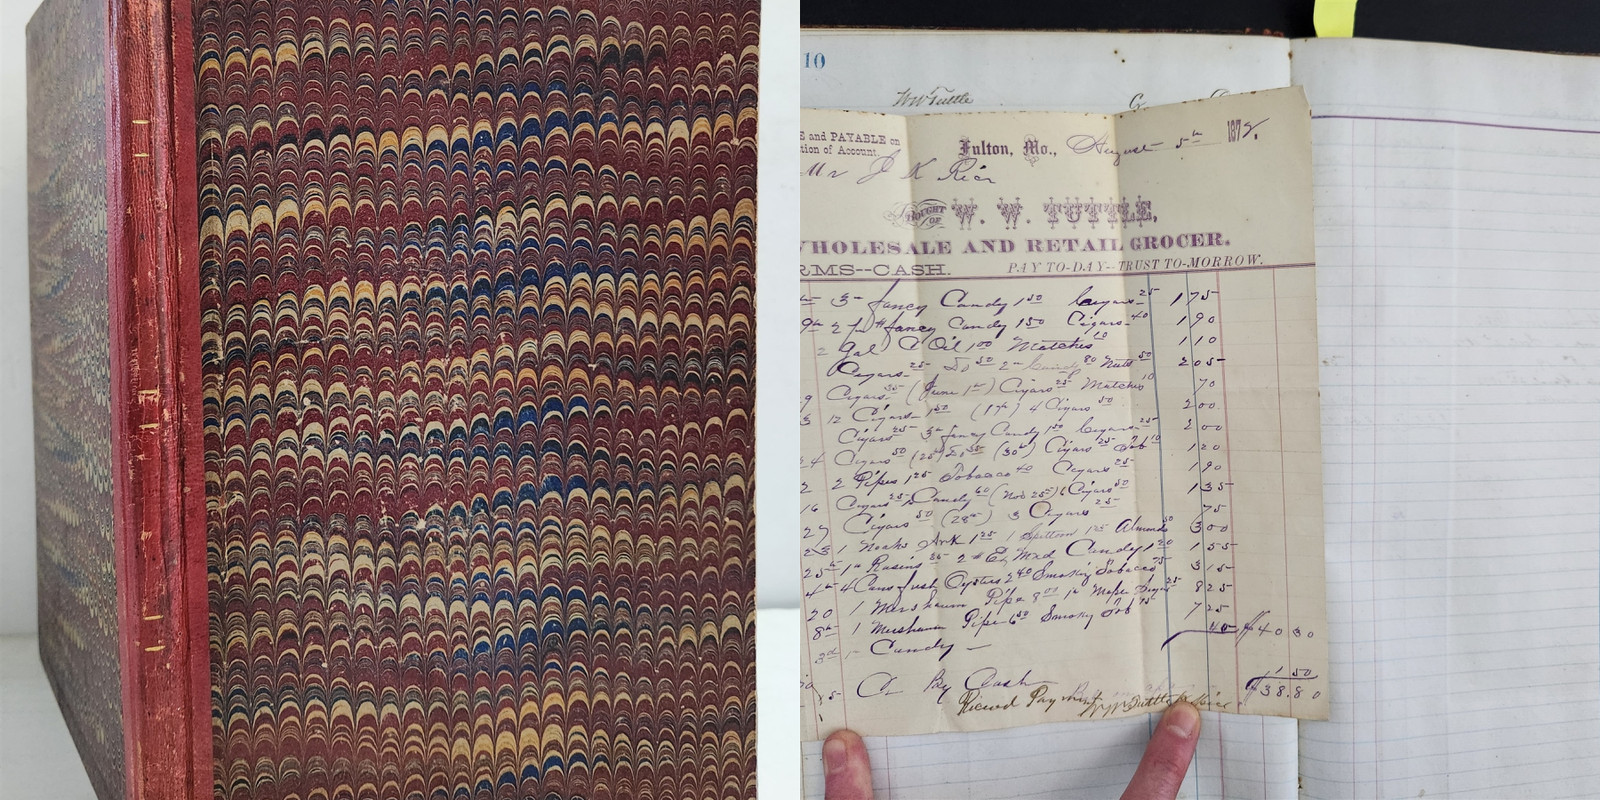 10
W W Tuttle
E and PAYABLE on
tion of Account.
Fulton, Mo., August 5th 187
Mr J K Rice
BOUGHT OF W. W. TUTTLE,
WHOLESALE AND RETAIL GROCER.
RMS--CASH. PAY TO-DAY--TRUST TO-MORROW.
3 fancy Candy 1 50 Cigars 25 1 75
9th 2 # fancy Candy 1 50 Cigars 40 1 90
2 Gal C Oil 1 00 Matches 10 1 10
Cigars 25 50 2 Candy 80 Nuts 50 2 05
9 Cigars 35 (June 1st) Cigars 25 Matches 10 70
3 12 Cigars 1 50 (17th) 4 Cigars 50 2 00
Cigars 25 3 fancy Candy 1 50 Cigars 25 2 00
4 Cigars 50 (25th) (30th) Cigars 25 Tob 10 1 20
2 2 Pipes 1 25 Tobacco 40 Cigars 25 1 90
16 Cigars 25 Candy 60 (Nov 25th) Cigars 50 1 35
27 Cigars 50 (28th) 3 Cigars 25 75
23 1 Noahs Ark 1 25 1 Spittoon 1 25 Almonds 50 3 00
25th 1# Rasins 35 2# Ex Mxd Candy 1 20 1 55
4th 4 Cans fresh Oysters 2 40 Smoking Tobacco 75 3 15
20 1 Mershaum Pipe 8 00 1# Maple Sugar 25 8 25
8th 1 Mershaum Pipe 6 50 Smoky Tob 75 7 25
3d Candy 40 $40 30
Cr By Cash 1 50
$38.80
Recievd Payment W W Tuttle